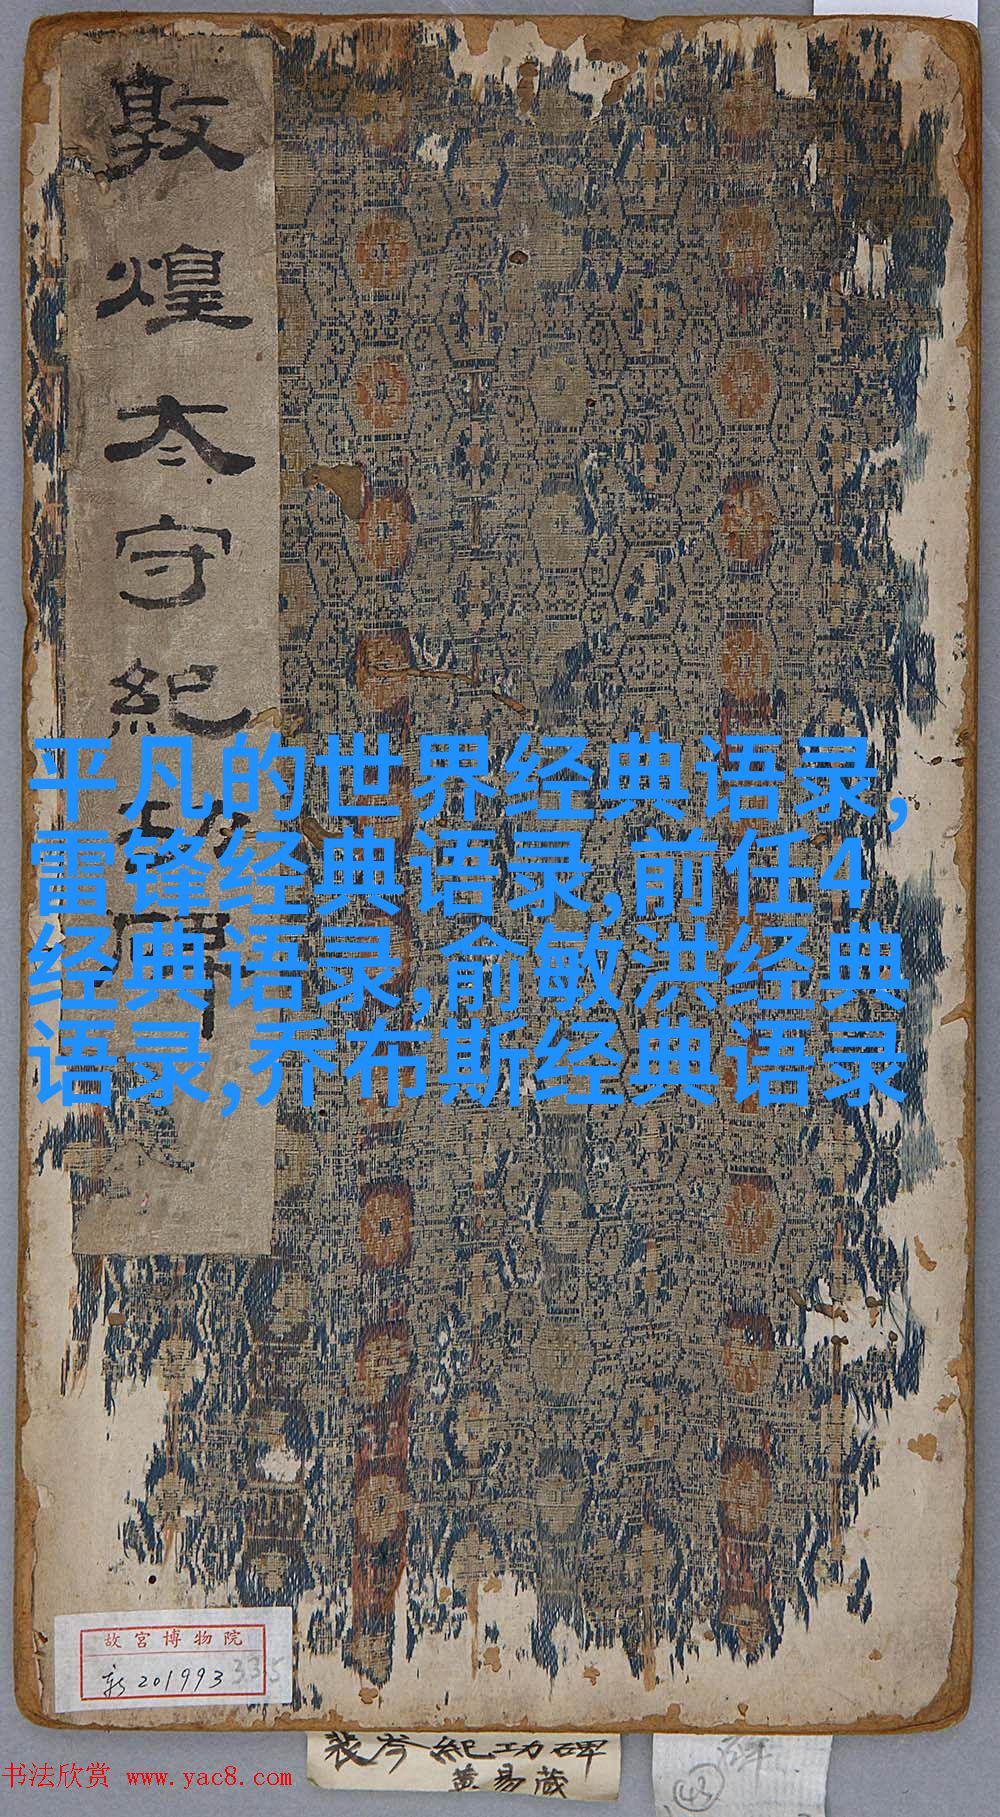 敦煌太守紀功碑
平凡的世界经典语录,
雷锋经典语录,前任4
经典语录,俞敏洪经典
语录,乔布斯经典语录
故宫博物院
新201993
335
裴岑紀功碑
黄易藏
43
书法欣赏 www.yac8.com